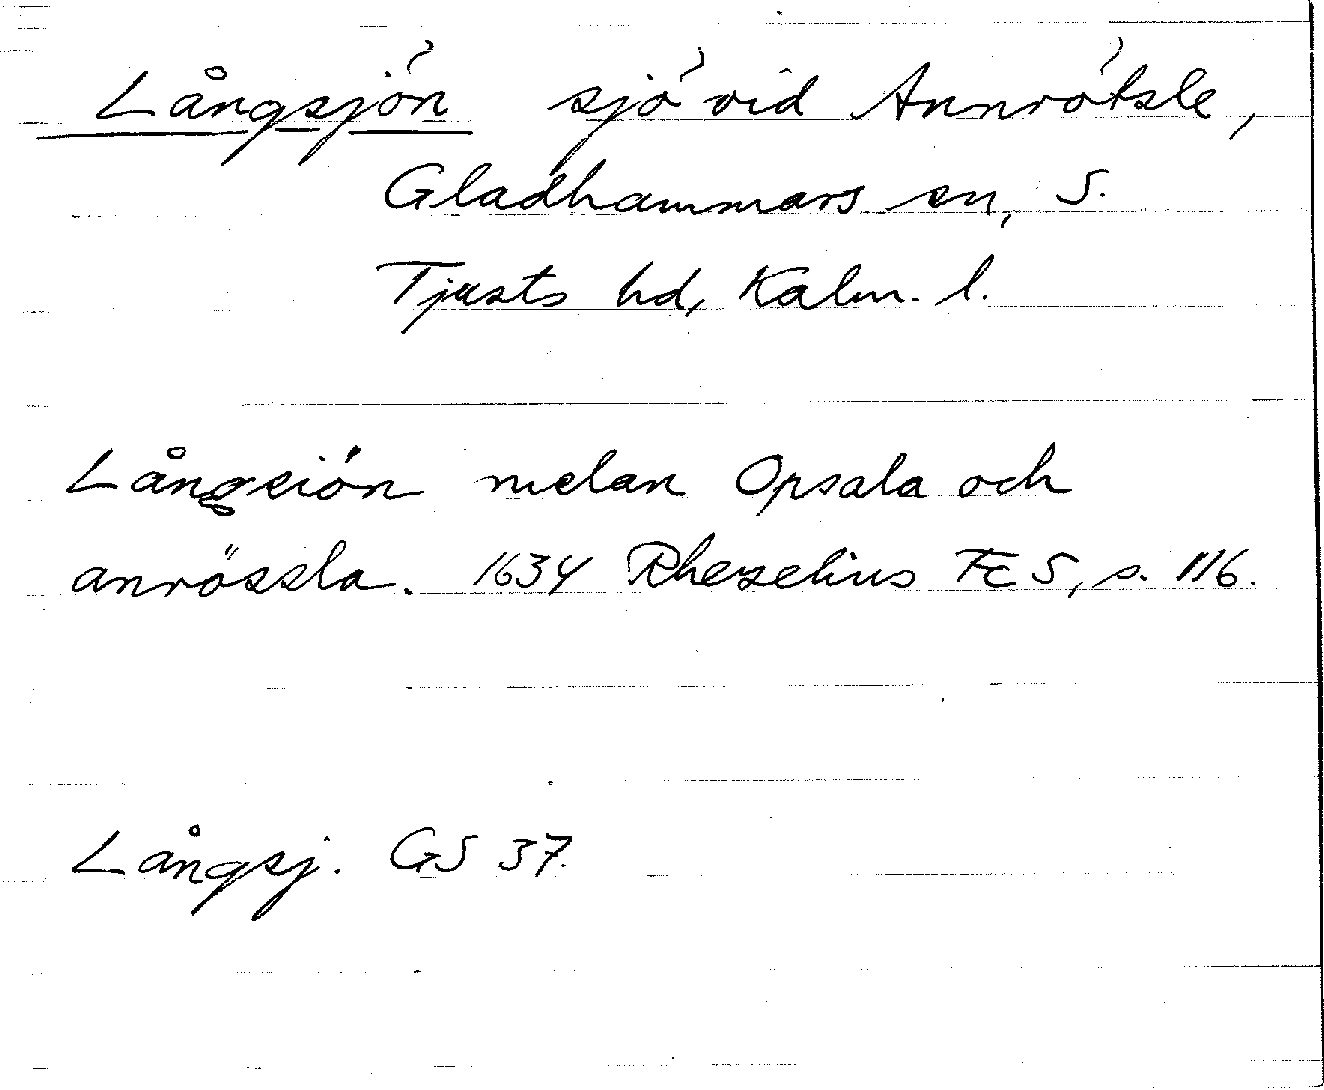 Långsjön sjö vid Annrötsle,
Gladhammars sn, S.
Tjusts hd, Kalm. l.
Långsiön melan Opsala och
anrössla. 1634 Rhezelius FÖS, s. 116.
Långsj. GS 37.